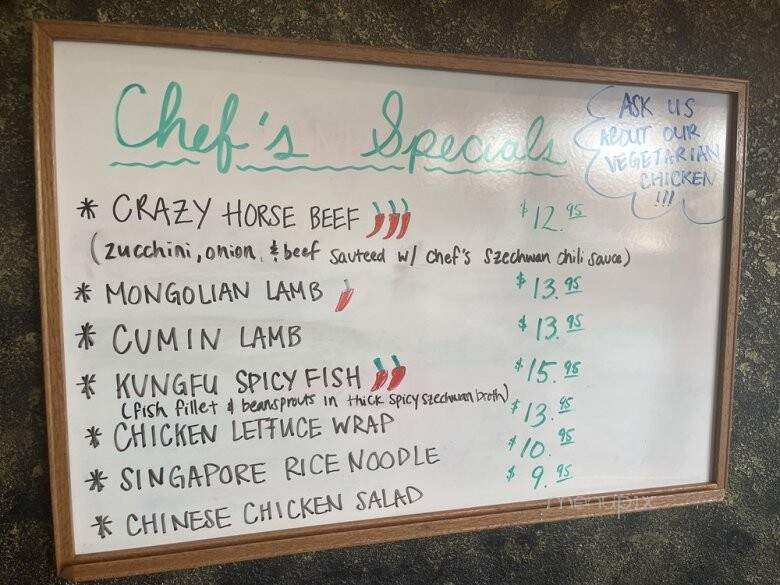 Chef's Specials
ASK US
ABOUT OUR
VEGETARIAN
CHICKEN
!!!
* CRAZY HORSE BEEF $12.95
(zucchini, onion, & beef sauteed w/ chef's Szechwan chili sauce)
* MONGOLIAN LAMB $13.95
* CUMIN LAMB $13.95
* KUNGFU SPICY FISH $15.95
(fish fillet & beansprouts in thick spicy szechwan broth)
* CHICKEN LETTUCE WRAP $13.95
* SINGAPORE RICE NOODLE $10.95
* CHINESE CHICKEN SALAD $9.95
menupix